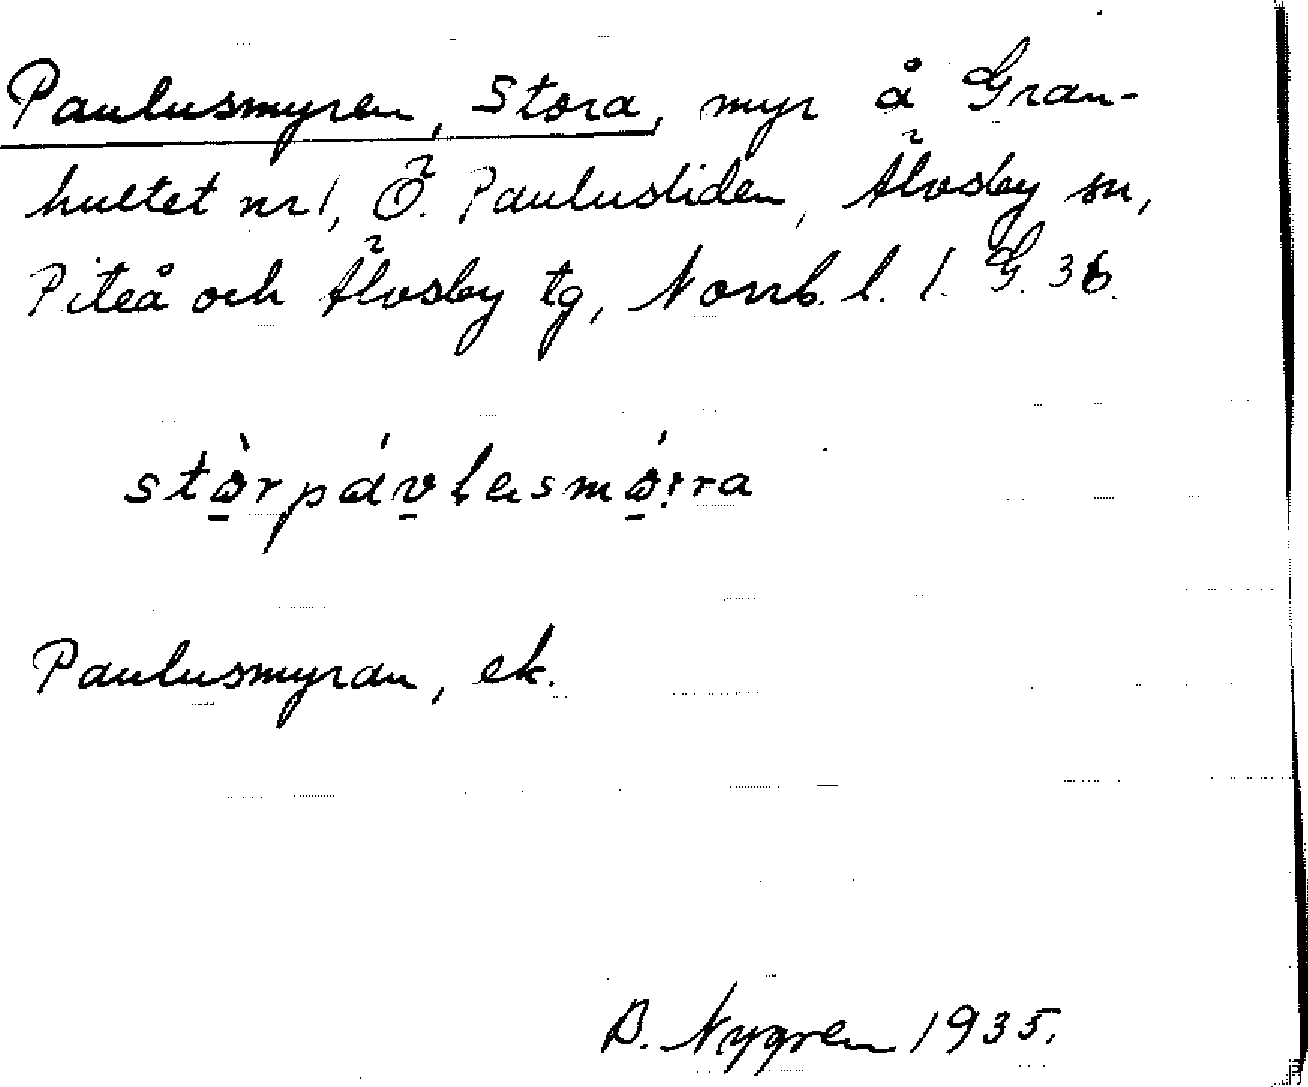 Paulusmyren, Stora, myr å Gran-
hultet nr 1, Ö. Paulusliden, Älvsby sn,
Piteå och Älvsby tg, Norrb. l. l. G. 36.
stòrpávlasmó:rra
Paulusmyran, ek.
Nygren 1935.